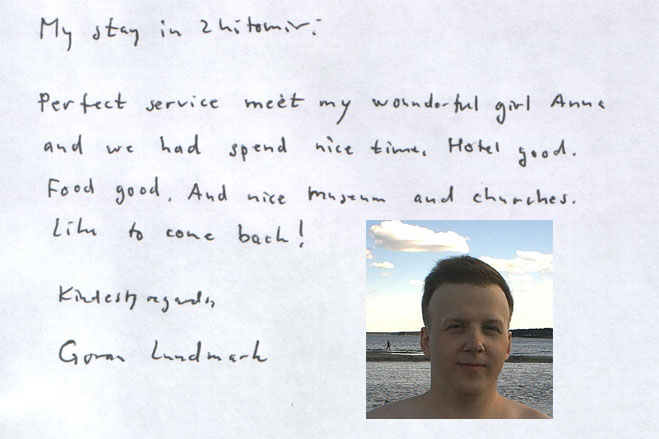 My stay in Zhitomir:
Perfect service meet my wounderful girl Anna
and we had spend nice time. Hotel good.
Food good. And nice museum and churches.
Like to come back!
Kindest regards,
Goran Lundmark